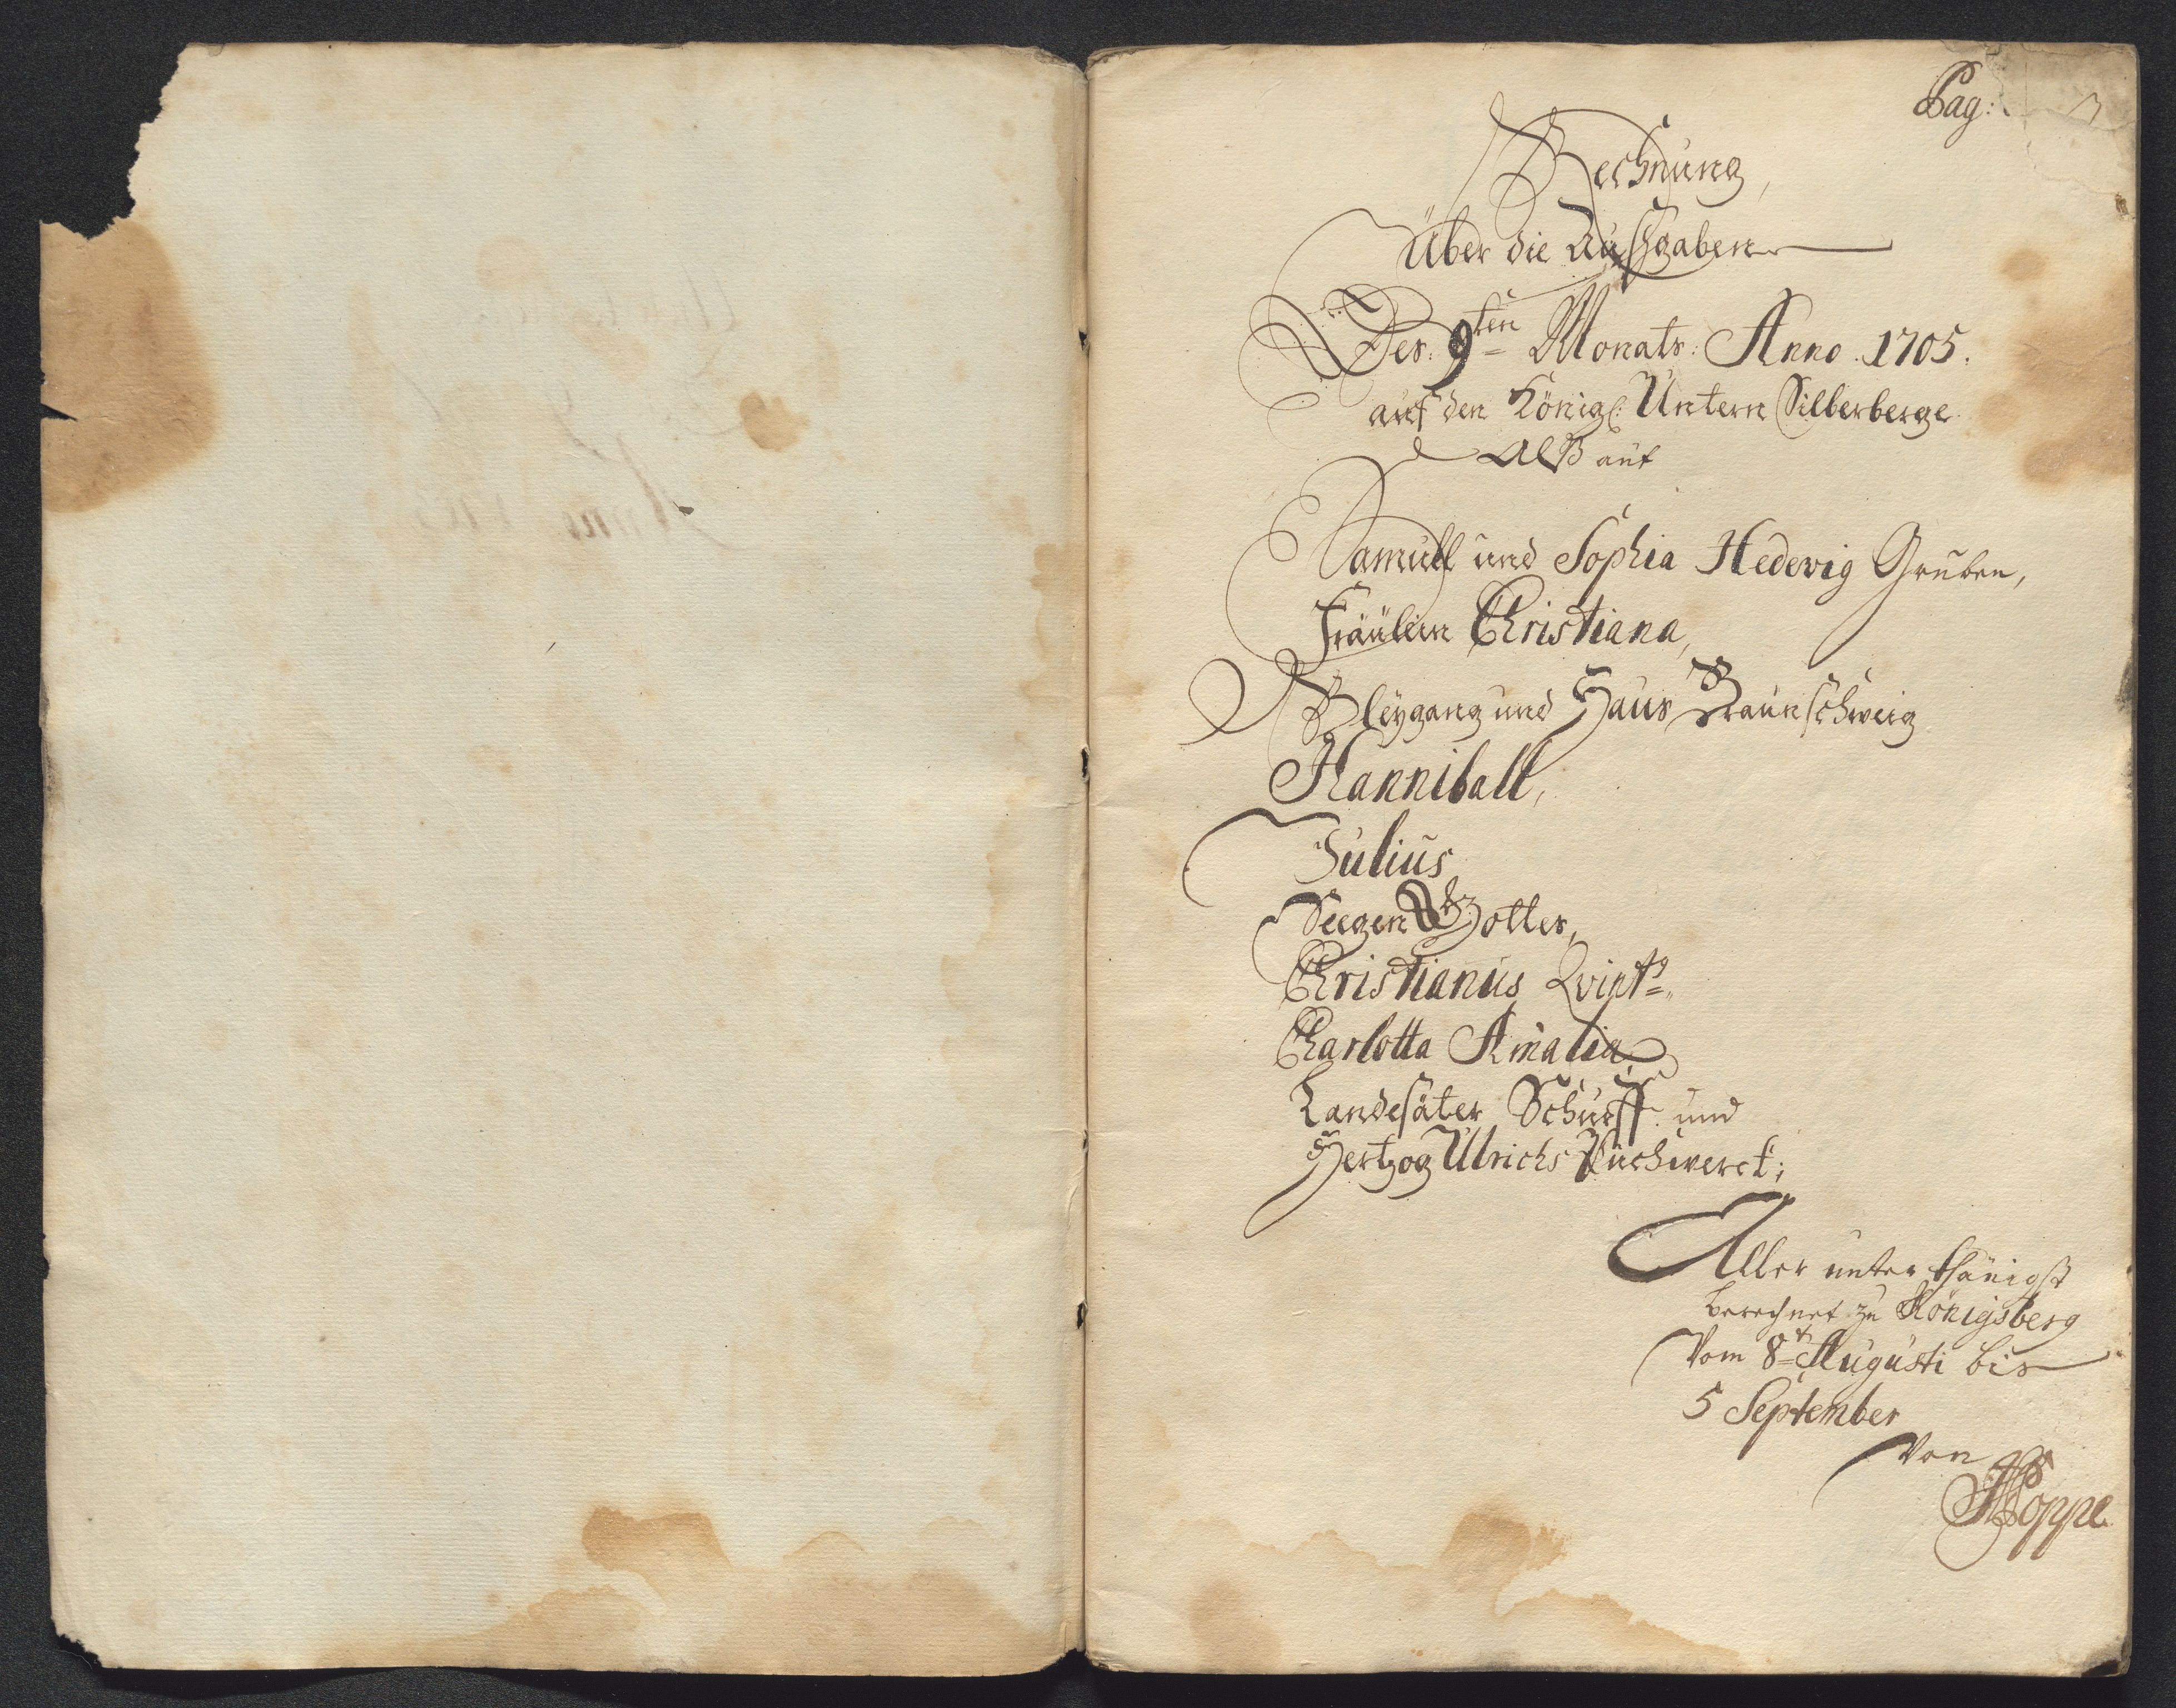 Pag:
Rechnung,
Über die Außgaben
Des. 9ten Monats: Anno. 1705.
auf den Königl: Untern Silberberge
Alß auf
Samuel und Sophia Hedevig Gruben,
Fräulein Christiana,
Bleygang und Haus Braunschweig
Hanniball,
Julius
Seegen Gottes,
Christianus Qvint9
Charlotta Amalia
Landesäter Schurff und
Hertzog Ulrichs Puchwerck;
Aller unterthänigst
berechnet zu Königsberg
Vom 8t Augusti bis
5 September
Von
Hoppe